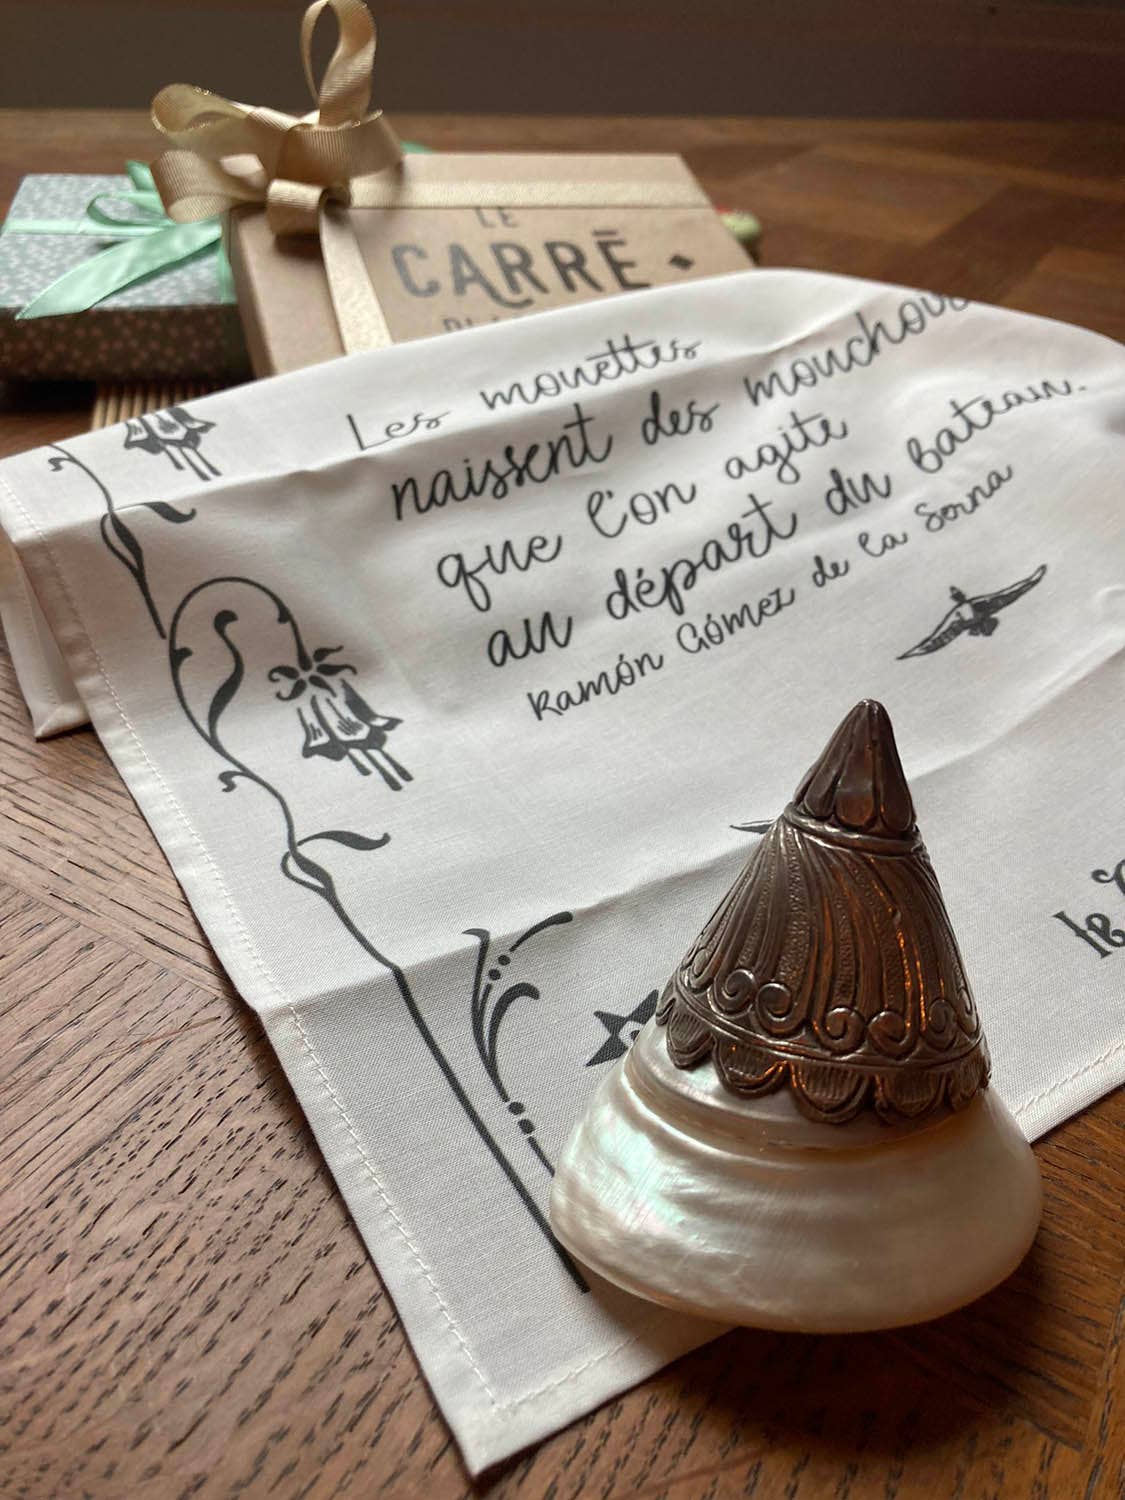 LE
CARRĒ
Les mouettes
naissent des mouchoirs
que l'on agite
au départ du bateau.
Ramón Gómez de la Serna
le